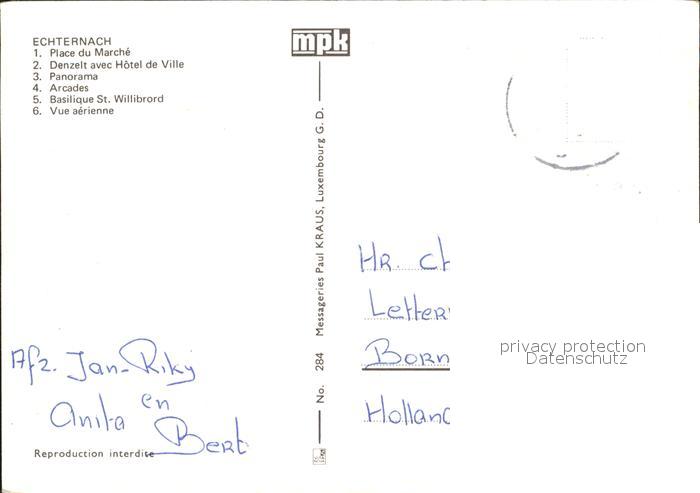 ECHTERNACH
1. Place du Marché
2. Denzelt avec Hôtel de Ville
3. Panorama
4. Arcades
5. Basilique St. Willibrord
6. Vue aérienne
Afz. Jan-Riky
en
Anita
Bert
Reproduction interdite
mpk
No. 284 Messageries Paul KRAUS, Luxembourg G. D.
HR. CH
Letter
BORN
Holland
privacy protection
Datenschutz